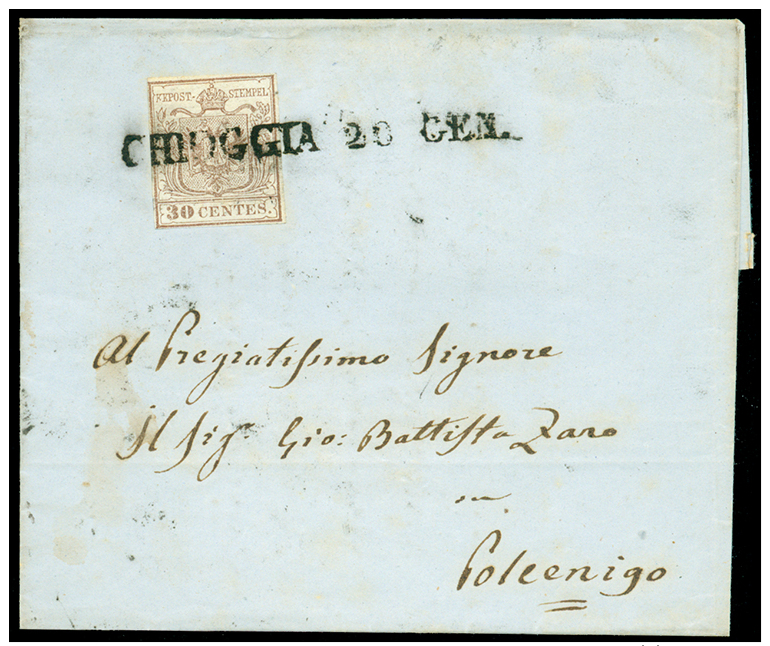 KKPOST-STEMPEL
CHIOGGIA 20 GEN.
30 CENTES.
Al Pregiatissimo Signore
Il Sigr. Gio: Battista Zaro
in
Polcenigo